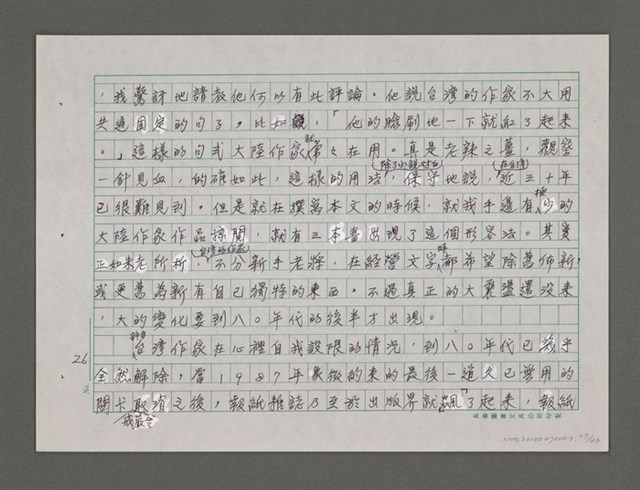 ，我驚訝地請教他何以有此評論。他說台灣的作家不大用
共通固定的句子，比如，「他的臉刷地一下就紅了起來
。」這樣的句式大陸作家就常之在用。真是老辣之薑，觀察
（除了小說對白）（在台灣）
一針見血，的確如此，這樣的用法，保守地說，近三十年
已很難見到。但是就在撰寫本文的時候，就我手邊有極少的
大陸作家作品，就有三本書出現了這個形容法。其實
台灣的作家
正如朱老所析，不分新手老將，在經營文字時都希望除舊佈新
或更舊為新有自己獨特的東西。不過真正的大棄還沒來
，大的變化要到八〇年代的後半才出現。
台灣作家在心裡自我設限的情況，到八〇年代已幾乎
全然解除，當1987年象徵的來的最後一道久已無用的
關卡取消之後，報紙雜誌乃至於出版界就「飆」了起來，報紙
戒嚴令
26
No.